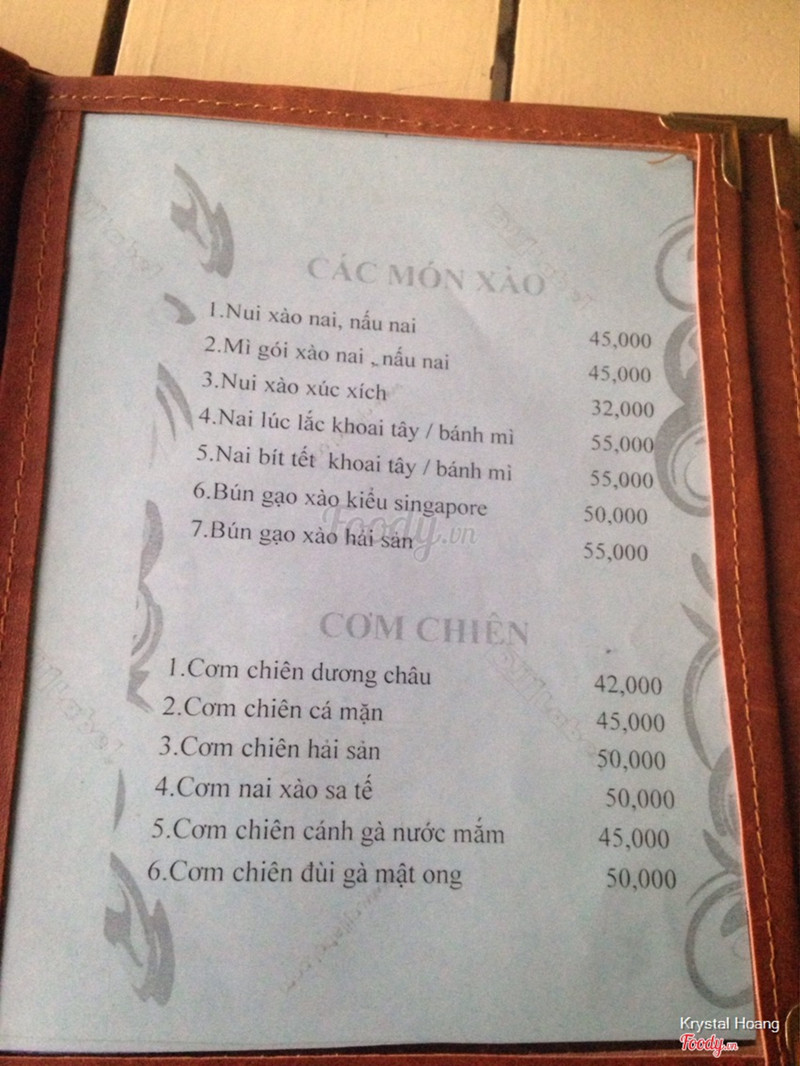 CÁC MÓN XÀO
1.Nui xào nai, nấu nai 45,000
2.Mì gói xào nai , nấu nai 45,000
3.Nui xào xúc xích 32,000
4.Nai lúc lắc khoai tây / bánh mì 55,000
5.Nai bít tết khoai tây / bánh mì 55,000
6.Bún gạo xào kiểu singapore 50,000
7.Bún gạo xào hải sản 55,000
Foody.vn
CƠM CHIÊN
1.Cơm chiên dương châu 42,000
2.Cơm chiên cá mặn 45,000
3.Cơm chiên hải sản 50,000
4.Cơm nai xào sa tế 50,000
5.Cơm chiên cánh gà nước mắm 45,000
6.Cơm chiên đùi gà mật ong 50,000
Krystal Hoang
Foody.vn